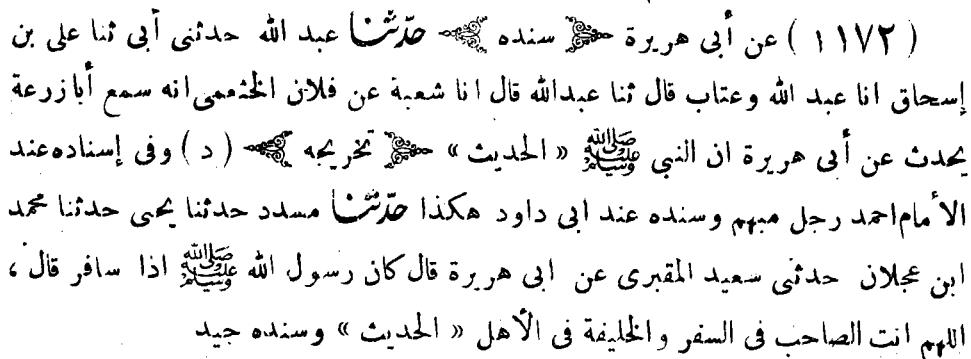 ( ١١٧٢ ) عن أبى هريرة ﴿ سنده ﴾ حدّثنا عبد الله حدثنى أبى ثنا على بن
إسحاق انا عبد الله وعتاب قال ثنا عبدالله قال انا شعبة عن فلان الخثعمى انه سمع أبا زرعة
يحدث عن أبى هريرة ان النبى ﷺ « الحديث » ﴿ تخريجه ﴾ ( د ) وفى إسناده عند
الأمام احمد رجل مبهم وسنده عند ابى داود هكذا حدّثنا مسدد حدثنا يحيى حدثنا محمد
ابن عجلان حدثنى سعيد المقبرى عن ابى هريرة قال كان رسول الله ﷺ اذا سافر قال ،
اللهم انت الصاحب فى السفر والخليفة فى الأهل « الحديث » وسنده جيد